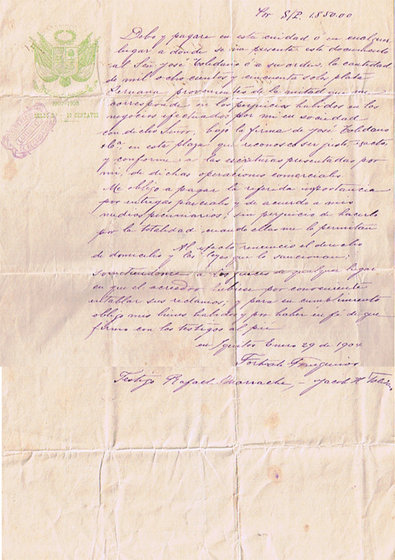 Por S/P. 1.850.00
Debo y pagaré en esta ciudad ó en cualquier
lugar a donde se me presente este documento
al Señ José Toledano ó a su orden, la cantidad
de mil ochocientos y cincuenta soles plata
Peruana provenientes de la mitad que me
corresponde en los perjuicios habidos en los
negocios efectuados por mi en sociedad
con dicho Señor, bajo la firma de José Toledano
en esta plaza que reconosco ser justo y exacto
y conforme a las escrituras presentadas por
mi, de dichas operaciones comerciales
Me obligo a pagar la referida importancia
por entregas parciales y de acuerdo a mis
medios pecuniarios, sin perjuicio de hacerlo
por la totalidad cuando ellos me lo permitan
Al efecto renuncio el derecho
de domicilio y las leyes que lo sancionan;
sometiendome a los jueces de cualquier lugar
en que el acreedor tubiese por conveniente
entablar sus reclamos, y para su cumplimiento
obligo mis bienes habidos y por haber en fé de que
firmo con los testigos al pie
en Iquitos Enero 29 de 1904
Testigo Rafael Marrache - Jacob H. Toledano